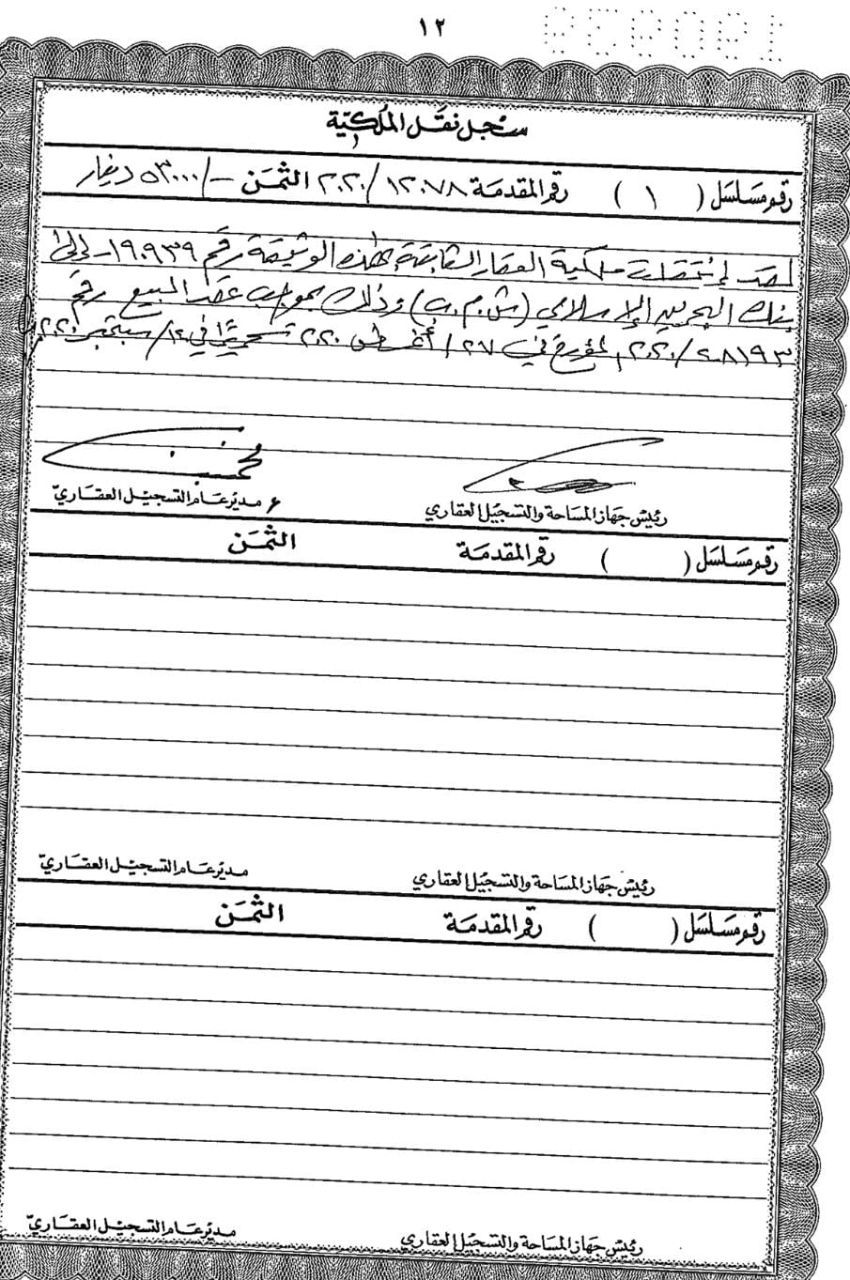 ١٢
190939
سجل نقل الملكية
رقم مسلسل ( ١ ) رقم المقدمة ١٢٠٧٨ / ٢٠٢٠ الثمن -/٥٣٠٠٠ دينار
لقد إنتقلت ملكية العقار الثابتة بهذه الوثيقة رقم ١٩٠٩٣٩ - إلى
بنك البحرين الإسلامي (ش.م.ب) وذلك بموجب عقد المبيع رقم
٢٠٢٠/٢٨١٩٣م المؤرخ في ٢٧ / أغسطس ٢٠٢٠ تحريرًا في /سبتمبر ٢٠٢٠م
رئيس جهاز المساحة والتسجيل العقاري ع مدير عام التسجيل العقاري
رقم مسلسل ( ) رقم المقدمة الثمن
رئيس جهاز المساحة والتسجيل العقاري مدير عام التسجيل العقاري
رقم مسلسل ( ) رقم المقدمة الثمن
رئيس جهاز المساحة والتسجيل العقاري مدير عام التسجيل العقاري